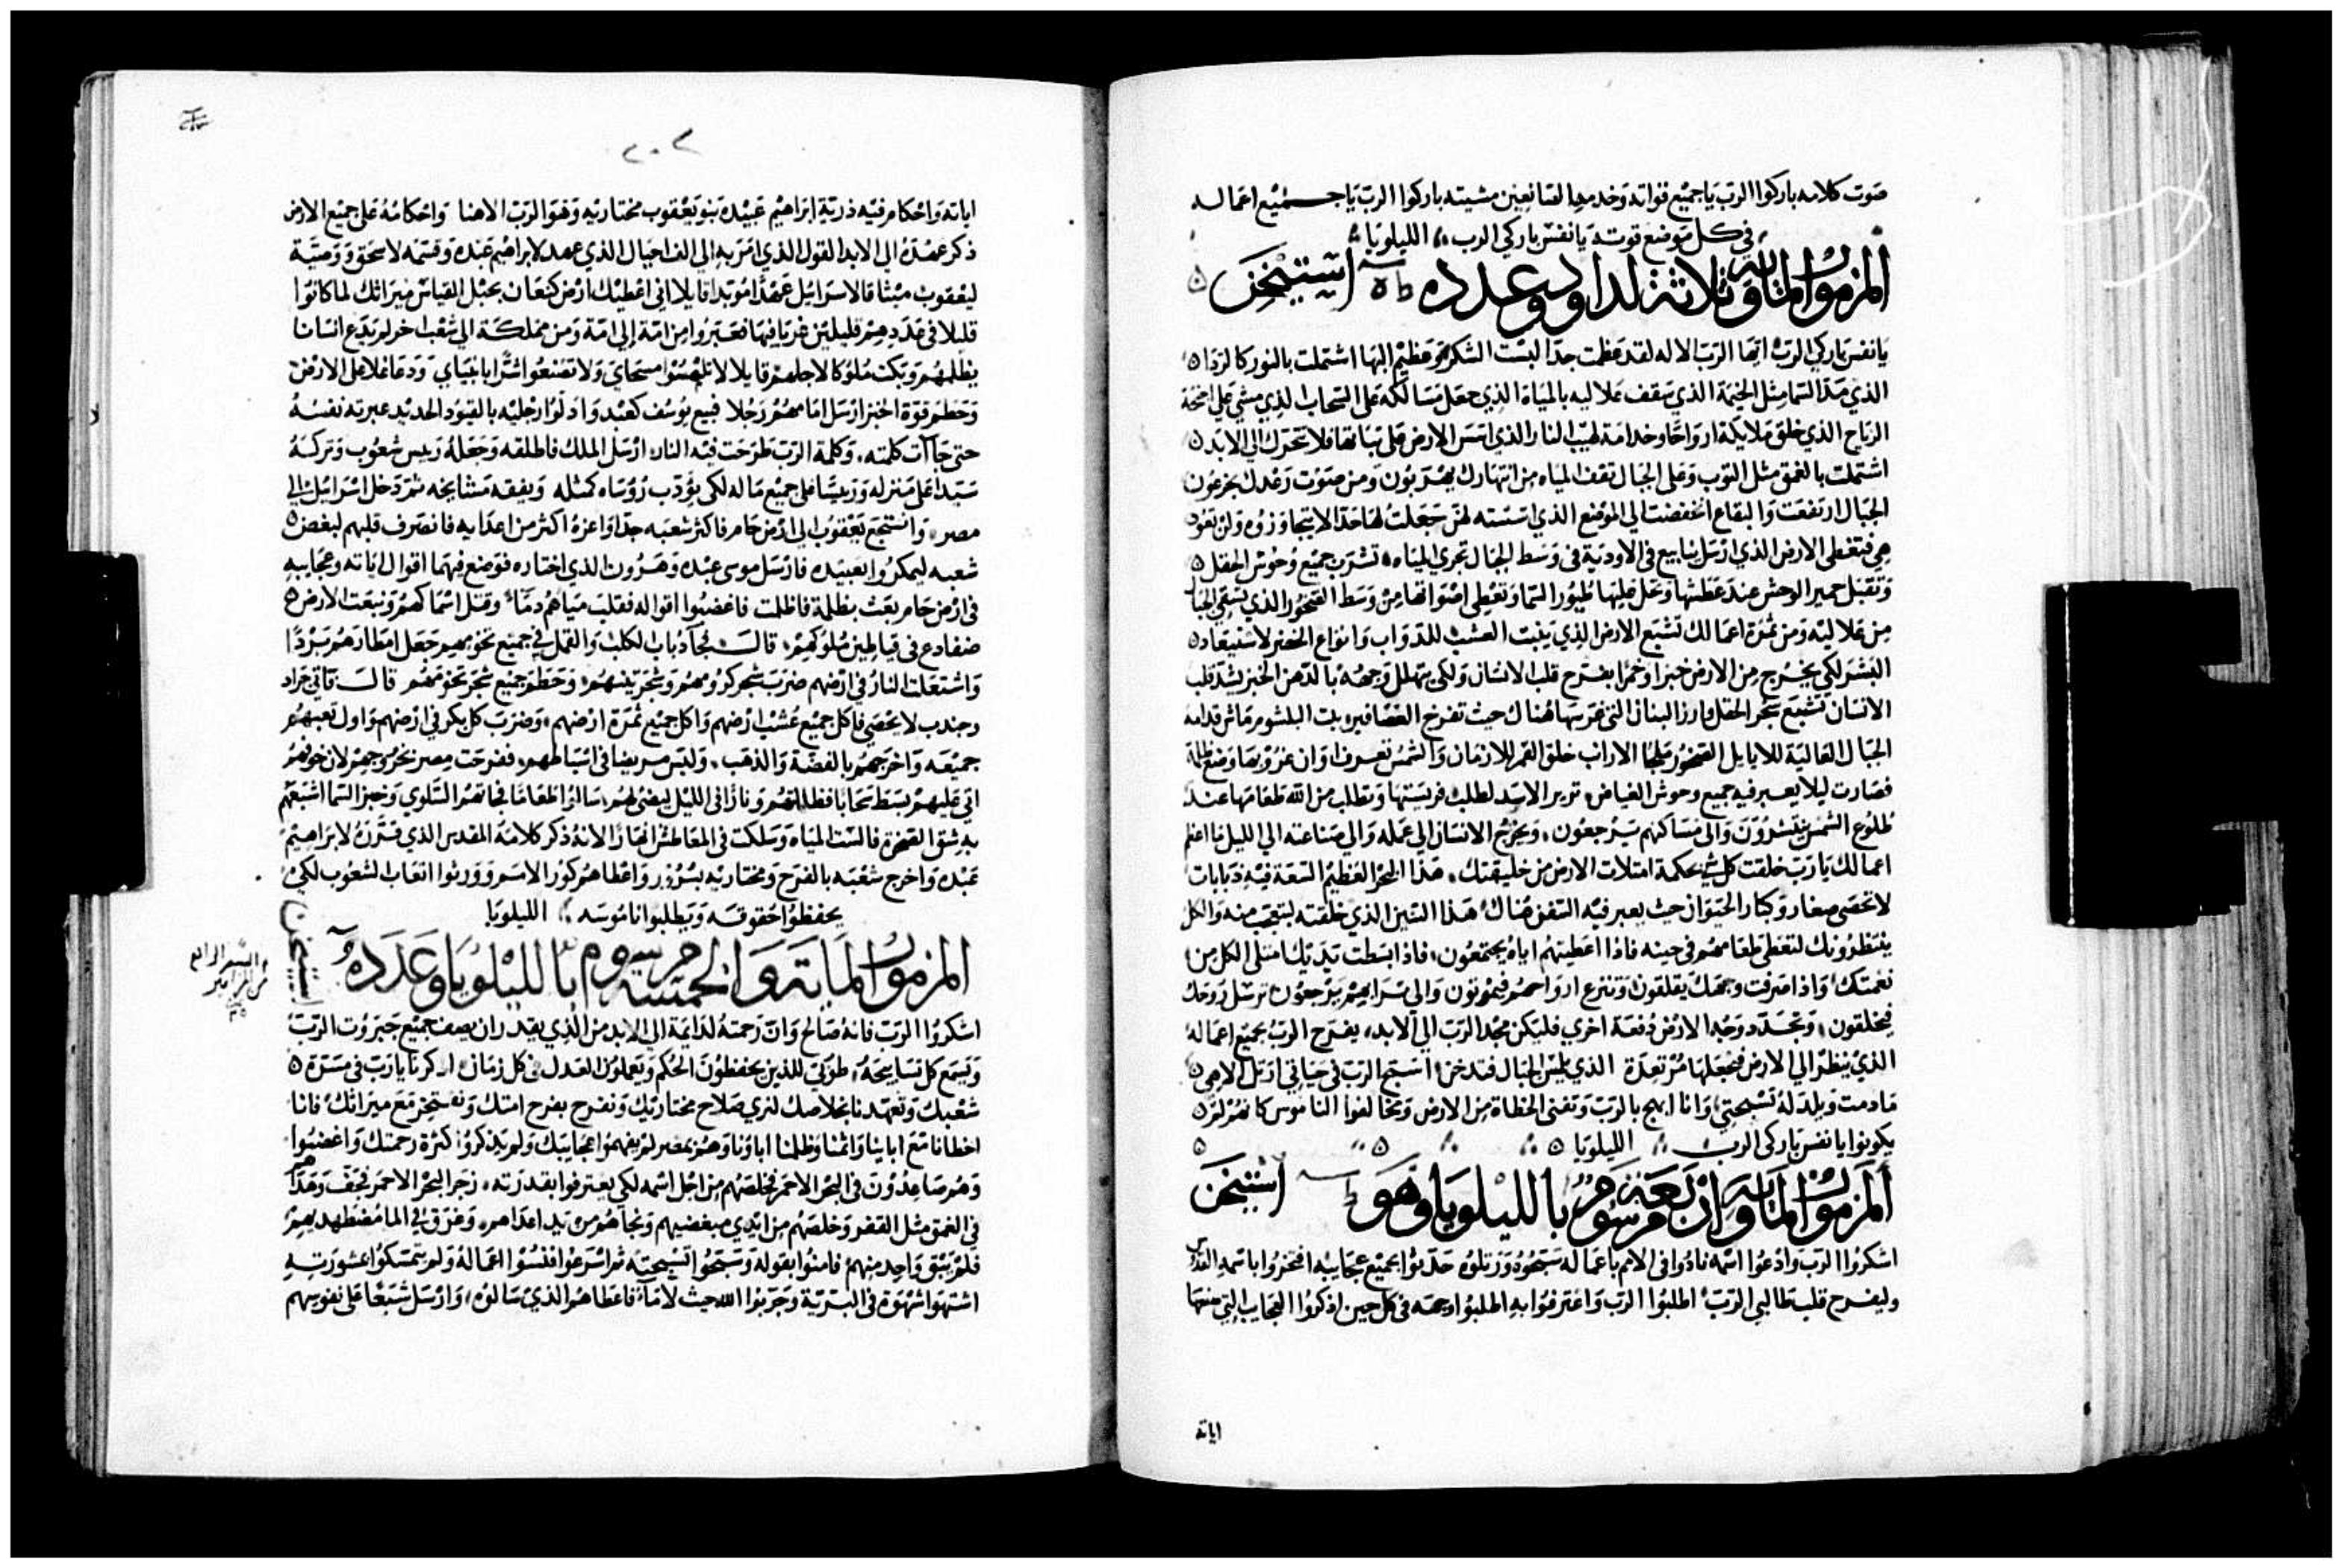 صوت كلامه باركوا الرب يا جميع قواته وخدمه الصانعين مشيته باركوا الرب يا جميع اعماله
في كل موضع قوته يا نفس باركي الرب الليلويا
المزمور الماية وثلاثة لداوود وعدده
يا نفس باركي الرب ايها الرب الاله لقد عظمت جدا لبست الشكر وعظيم البها اشتملت بالنور كالردا
الذي مد السما مثل الخيمة الذي سقف علاليه بالمياه الذي جعل مسالكه على السحاب الذي مشي على اجنحة
الرياح الذي خلق ملايكته ارواحا وخدامه لهيب النار الذي اسس الارض على ثباتها فلا تتحرك الي الابد
اشتملت بالغمق مثل التوب وعلى الجبال تقف المياه من انتهارك يهربون ومن صوت رعدك يجزعون
الجبال ارتفعت والبقاع انخفضت الي الموضع الذي اسسته لهن جعلت لها حدا لا يتجاوزوه ولن تعود
هي فتغطي الارض الذي ارسل ينابيع في الاودية في وسط الجبال تجري المياه تشرب جميع وحوش الحقل
وتقبل حمير الوحش عند عطشها وتحل عليها طيور السما وتعطي اصواتها من وسط الصخور الذي يسقي الجبال
من علاليه ومن ثمرة اعمالك تشبع الارض الذي ينبت العشب للدواب وانواع الخضر لاستيعاد
البشر لكي يخرج من الارض خبزا وخمرا يفرح قلب الانسان ولكي يتهلل وجهه بالدهن الخبز يشد قلب
الانسان تشبع شجر الحقل وارز البنان التي غرسها هناك حيث تفرخ العصافير بيت البلشوم ماثر قدامه
الجبال العالية للايايل الصخور ملجا الاراب خلق القمر للازمان والشمس تعرف اوان غروبها وضع ظلمة
فصارت ليلا يعبر فيه جميع وحوش الغياض تزير الاسد لطلب فريستها وتطلب من الله طعامها عند
طلوع الشمس ينتشرون والى مساكنهم يرجعون ويخرج الانسان الي عمله والي صناعته الي الليل ما اعظم
اعمالك يا رب خلقت كل شي بحكمة امتلات الارض من خليقتك هذا البحر العظيم السعة فيه دبابات
لا تحصى صغار وكبار الحيوان حيث يعبر فيه السفن هناك هذا التنين الذي خلقته ليتعجب منه والكل
ينتظرونك لتعطي طعامهم في حينه فاذا اعطيتهم اياه يجتمعون فاذا بسطت يديك امتلى الكل من
نعمتك واذا صرفت وجهك يقلقون وتنزع ارواحهم فيموتون والي ترابهم يرجعون ترسل روحك
فيخلقون وتجدد وجه الارض دفعة اخرى فليكن مجد الرب الي الابد يفرح الرب بجميع اعماله
الذي ينظر الي الارض فيجعلها مرتعدة الذي يلمس الجبال فتدخن اسبح الرب في حياتي ارتل لالاهي
ما دمت ويلد له تسبيحتي وانا ابهج بالرب وتفنى الخطاة من الارض ومخالفوا الناموس كانهم لم
يكونوا يا نفس باركي الرب الليلويا
المزمور الماية واربعة مرسوم بالليلويا وهو استيخن
اشكروا الرب وادعوا اسمه نادوا في الامم باعماله سبحوه ورتلوه حدثوا بجميع عجايبه افتخروا باسمه القدوس
وليفرح قلب طالبي الرب اطلبوا الرب واعترفوا به اطلبوا وجهه في كل حين اذكروا العجايب التي صنعها
اياته
٢٠٢
اياته واحكام فيه ذرية ابراهيم عبيده بنو يعقوب مختاريه وهو الرب الاهنا واحكامه على جميع الارض
ذكر عهده الي الابد القول الذي امر به الي الف اجيال الذي عهد لابراهيم عبده وقسمه لاسحق ووصية
ليعقوب ميثاقا لاسراييل عهدا موبدا قايلا اني اعطيك ارض كنعان بحبل القياس ميراثك لما كانوا
قليلا في عددهم قليلين غربا فيها فعبروا من امة الي امة ومن مملكة الي شعب اخر لم يدع انسانا
يظلمهم وبكت ملوكا لاجلهم قايلا لا تلمسوا مسحاي ولا تصنعوا شرا بانبياي ودعا غلا على الارض
وحطم قوة الخبز ارسل امامهم رجلا فبيع يوسف كعبد واذلوا رجليه بالقيود الحديد عبرته نفسه
حتى جاات كلمته وكلمة الرب طرحت فيه النار ارسل الملك فاطلقه وجعله رييس شعوب وتركه
سيدا على منزله ورييسا على جميع ماله لكي يؤدب رؤساه كمثله ويفقه مشايخه ثم دخل اسراييل الي
مصر وانتجع يعقوب الي ارض حام فاكثر شعبه جدا واعزه اكثر من اعدايه فانصرف قلبهم لبغض
شعبه ليمكروا بعبيده فارسل موسى عبده وهرون الذي اختاره فوضع فيهما اقوال اياته وعجايبه
في ارض حام بعث بظلمة فاظلمت فاغضبوا اقواله فقلب مياههم دما وقتل اسماكهم ونبعت الارض
ضفادع في قياطين ملوكهم قال فجا ذباب الكلب والقمل في جميع تخومهم جعل امطارهم بردا
واشتعلت النار في ارضهم ضرب شجر كرومهم وشجر تينهم وحطم جميع شجر تخومهم قال فاتي جراد
وجندب لا يحصي فاكل جميع عشب ارضهم واكل جميع ثمرة ارضهم وضرب كل بكر في ارضهم واول تعبهم
جميعه واخرجهم بالفضة والذهب وليس مريضا في اسباطهم ففرحت مصر بخروجهم لان خوفهم
اتي عليهم بسط سحابا فظللتهم ونارا في الليل ليضي لهم سالوا طعاما فجاتهم السلوي وخبز السما اشبعهم
به شق الصخرة فسالت المياه وسلكت في المعاطش انهارا لانه ذكر كلامه المقدس الذي قرره لابراهيم
عبده واخرج شعبه بالفرح ومختاريه بسرور واعطاهم كور الامم وورثوا اتعاب الشعوب لكي
يحفظوا حقوقه ويطلبوا ناموسه الليلويا
المزمور الماية والخمسه مرسوم بالليلويا وعدده
استيخن
اشكروا الرب فانه صالح وان رحمته لدايمة الي الابد من الذي يقدر ان يصف جميع جبروت الرب
ويسمع كل تسابيحه طوبى للذين يحفظون الحكم ويعملون العدل في كل زمان اذكرنا يا رب في مسرة
شعبك وتعهدنا بخلاصك لنري صلاح مختاريك ونفرح بفرح امتك ونفتخر مع ميراثك فانا
اخطانا مع ابايينا واثمنا وظلمنا اباونا وهم بمصر لم يفهموا عجايبك ولم يذكروا كثرة رحمتك واغضبوا
وهم صاعدون في البحر الاحمر فخلصهم من اجل اسمه لكي يعترفوا بقدرته زجر البحر الاحمر فجف وهداهم
في الغمق مثل القفر وخلصهم من ايدي مبغضيهم ونجاهم من يد اعداهم وغرق في الما مضطهديهم
فلم يتبق واحد منهم فامنوا بقوله وسبحوا تسبيحته ثم اسرعوا فنسوا اعماله ولم يتمسكوا بمشورته
اشتهوا شهوة في البرية وجربوا الله حيث لا ما فاعطاهم الذي سالوه وارسل شبعا على نفوسهم